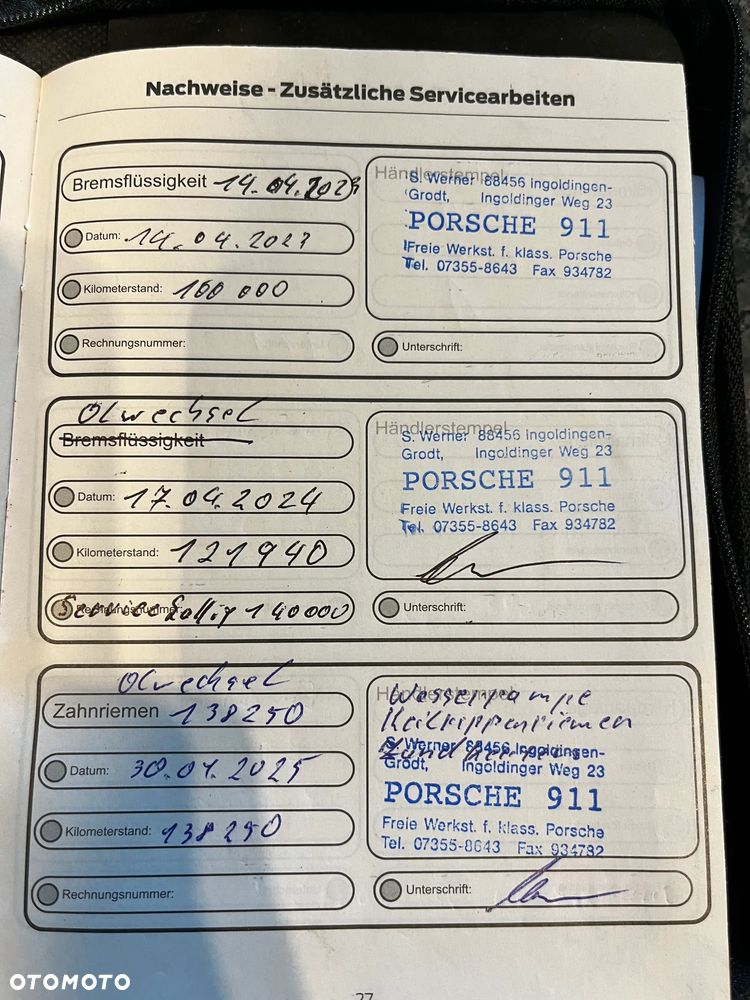 Nachweise - Zusätzliche Servicearbeiten
Bremsflüssigkeit 14.04.2023
Datum: 14.04.2023
Kilometerstand: 100 000
Rechnungsnummer:
Händlerstempel
S. Werner 88456 Ingoldingen-
Grodt, Ingoldinger Weg 23
PORSCHE 911
Freie Werkst. f. klass. Porsche
Tel. 07355-8643 Fax 934782
Unterschrift:
Olwechsel
Bremsflüssigkeit
Datum: 17.04.2024
Kilometerstand: 121940
Rechnungsnummer:
Service fällig 140000
Händlerstempel
S. Werner 88456 Ingoldingen-
Grodt, Ingoldinger Weg 23
PORSCHE 911
Freie Werkst. f. klass. Porsche
Tel. 07355-8643 Fax 934782
Unterschrift:
Olwechsel
Zahnriemen 138250
Datum: 30.04.2025
Kilometerstand: 138250
Rechnungsnummer:
Händlerstempel
Wasserpumpe
Keilrippenriemen
S. Werner 88456 Ingoldingen-
Grodt, Ingoldinger Weg 23
PORSCHE 911
Freie Werkst. f. klass. Porsche
Tel. 07355-8643 Fax 934782
Unterschrift:
27
OTOMOTO